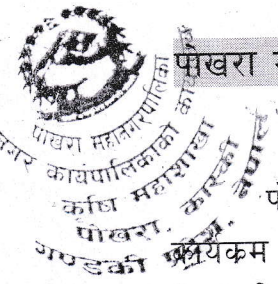 पोखरा
पोखरा महानगरपालिका
नगर कार्यपालिकाको
कृषि महाशाखा
पोखरा, कास्की
गण्डकी प्रदेश, नेपाल
कार्यकम